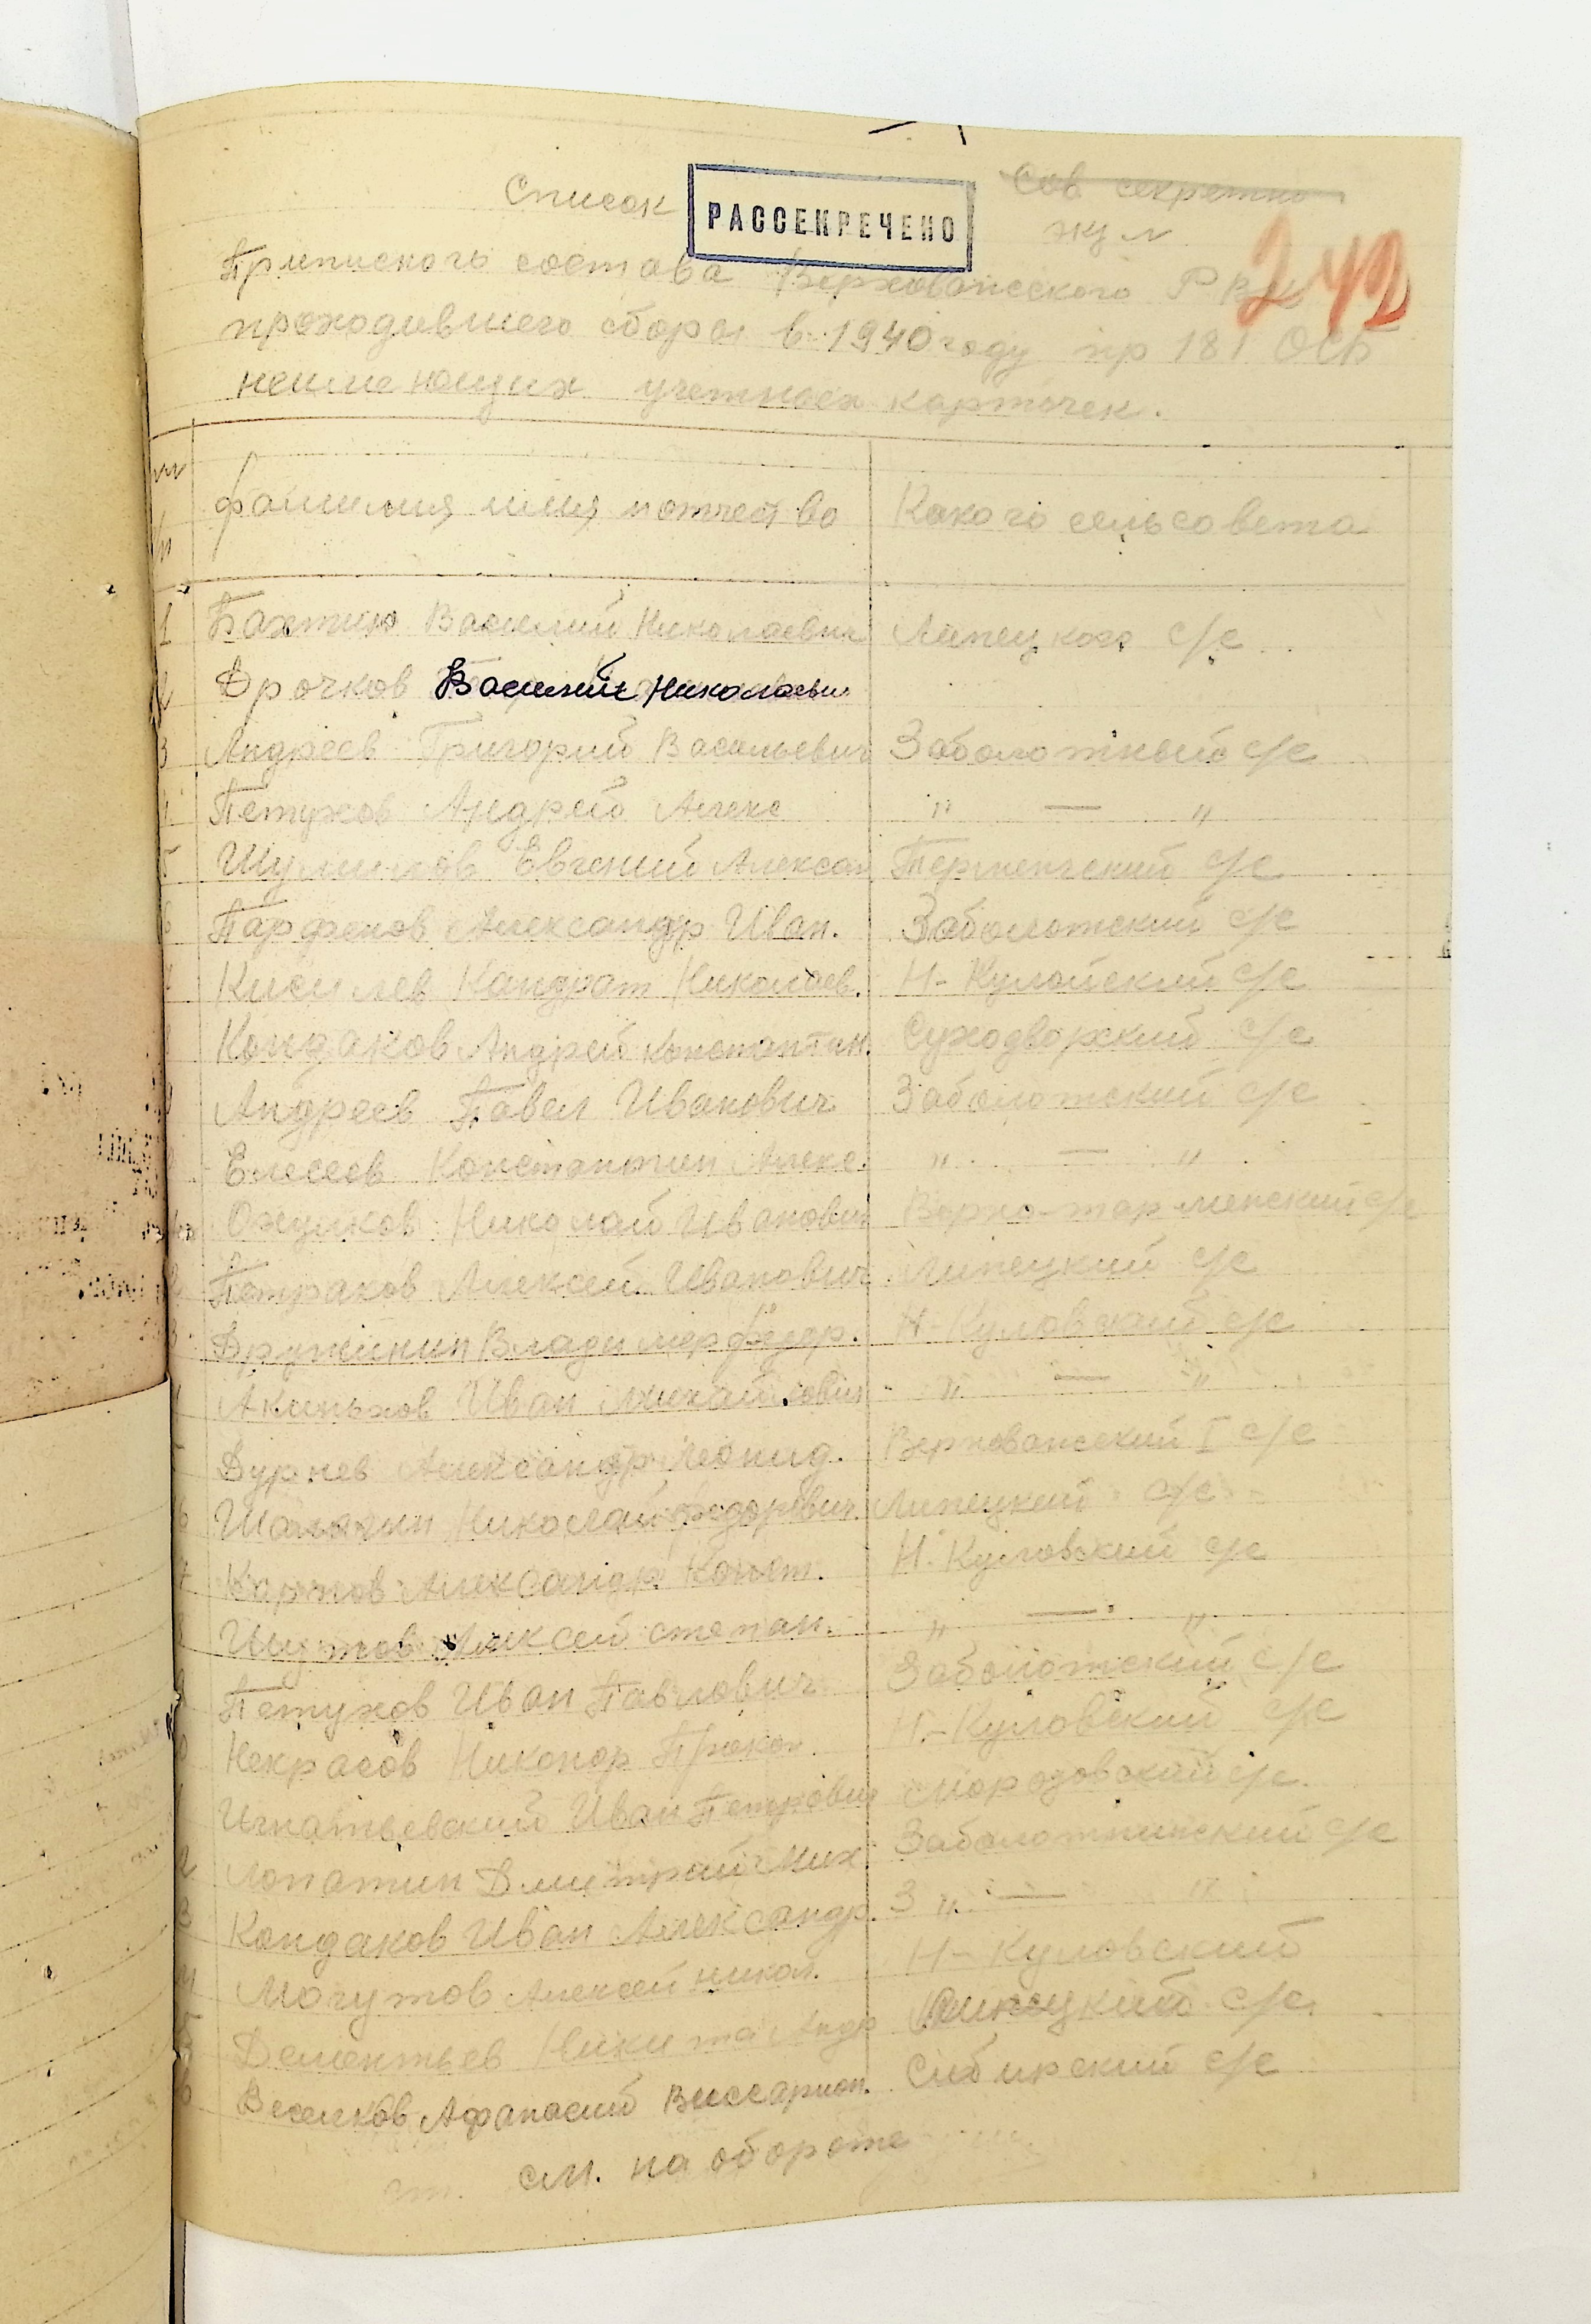 Сов секретно
Список
РАССЕКРЕЧЕНО
242
Приписного состава Верховажского РВК
проходившего сборы в 1940 году пр 181 ОСБ
неимеющих учетных карточек.
Фамилия имя и отчество Какого сельсовета
1 Бахтин Василий Николаевич Липецкого с/с
2 Дрочков Василий Николаевич
3 Андреев Григорий Васильевич Заболотный с/с
Петухов Андрей Алекс " — "
5 Шумилов Евгений Алексан Терменгский с/с
6 Парфенов Александр Иван. Заболотский с/с
Кисилев Кандрат Николаев. Н-Кулойский с/с
Кондаков Андрей Константин. Суходворский с/с
Андреев Павел Иванович Заболотский с/с
Елесеев Константин Алекс. " — "
Ожулков Николай Иванович с/с
Петраков Алексей Иванович Липецкий с/с
Дружинин Владимер Федор. Н-Куловский с/с
Акиньхов Иван Михайлович " — "
Дурнев Александр Леонид. Верховажский I с/с
6 Николай Федорович Липецкий с/с
7 Карпов Александр Конст. Н-Куловский с/с
Шутов Алексей степан. " — "
9 Петухов Иван Павлович Заболотский с/с
Некрасов Никонор Прокоп. Н-Куловский с/с
Игнатьевский Иван Петрович Морозовский с/с
2 Лопатин Дмитрий Мих Заболотнинский с/с
3 Кондаков Иван Александр. З " — "
4 Могутов Алексей никол. Н-Куловский
5 Дементьев Никита Андр Липецкий с/с
6 Афанасий Виссарион. Сибирский с/с
см. на обороте